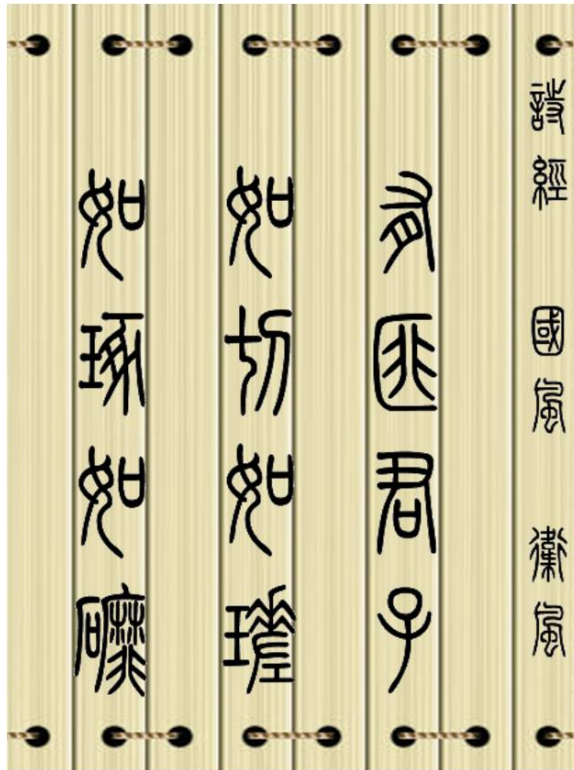 詩經 國風 衛風
有匪君子
如切如瑳
如琢如磨